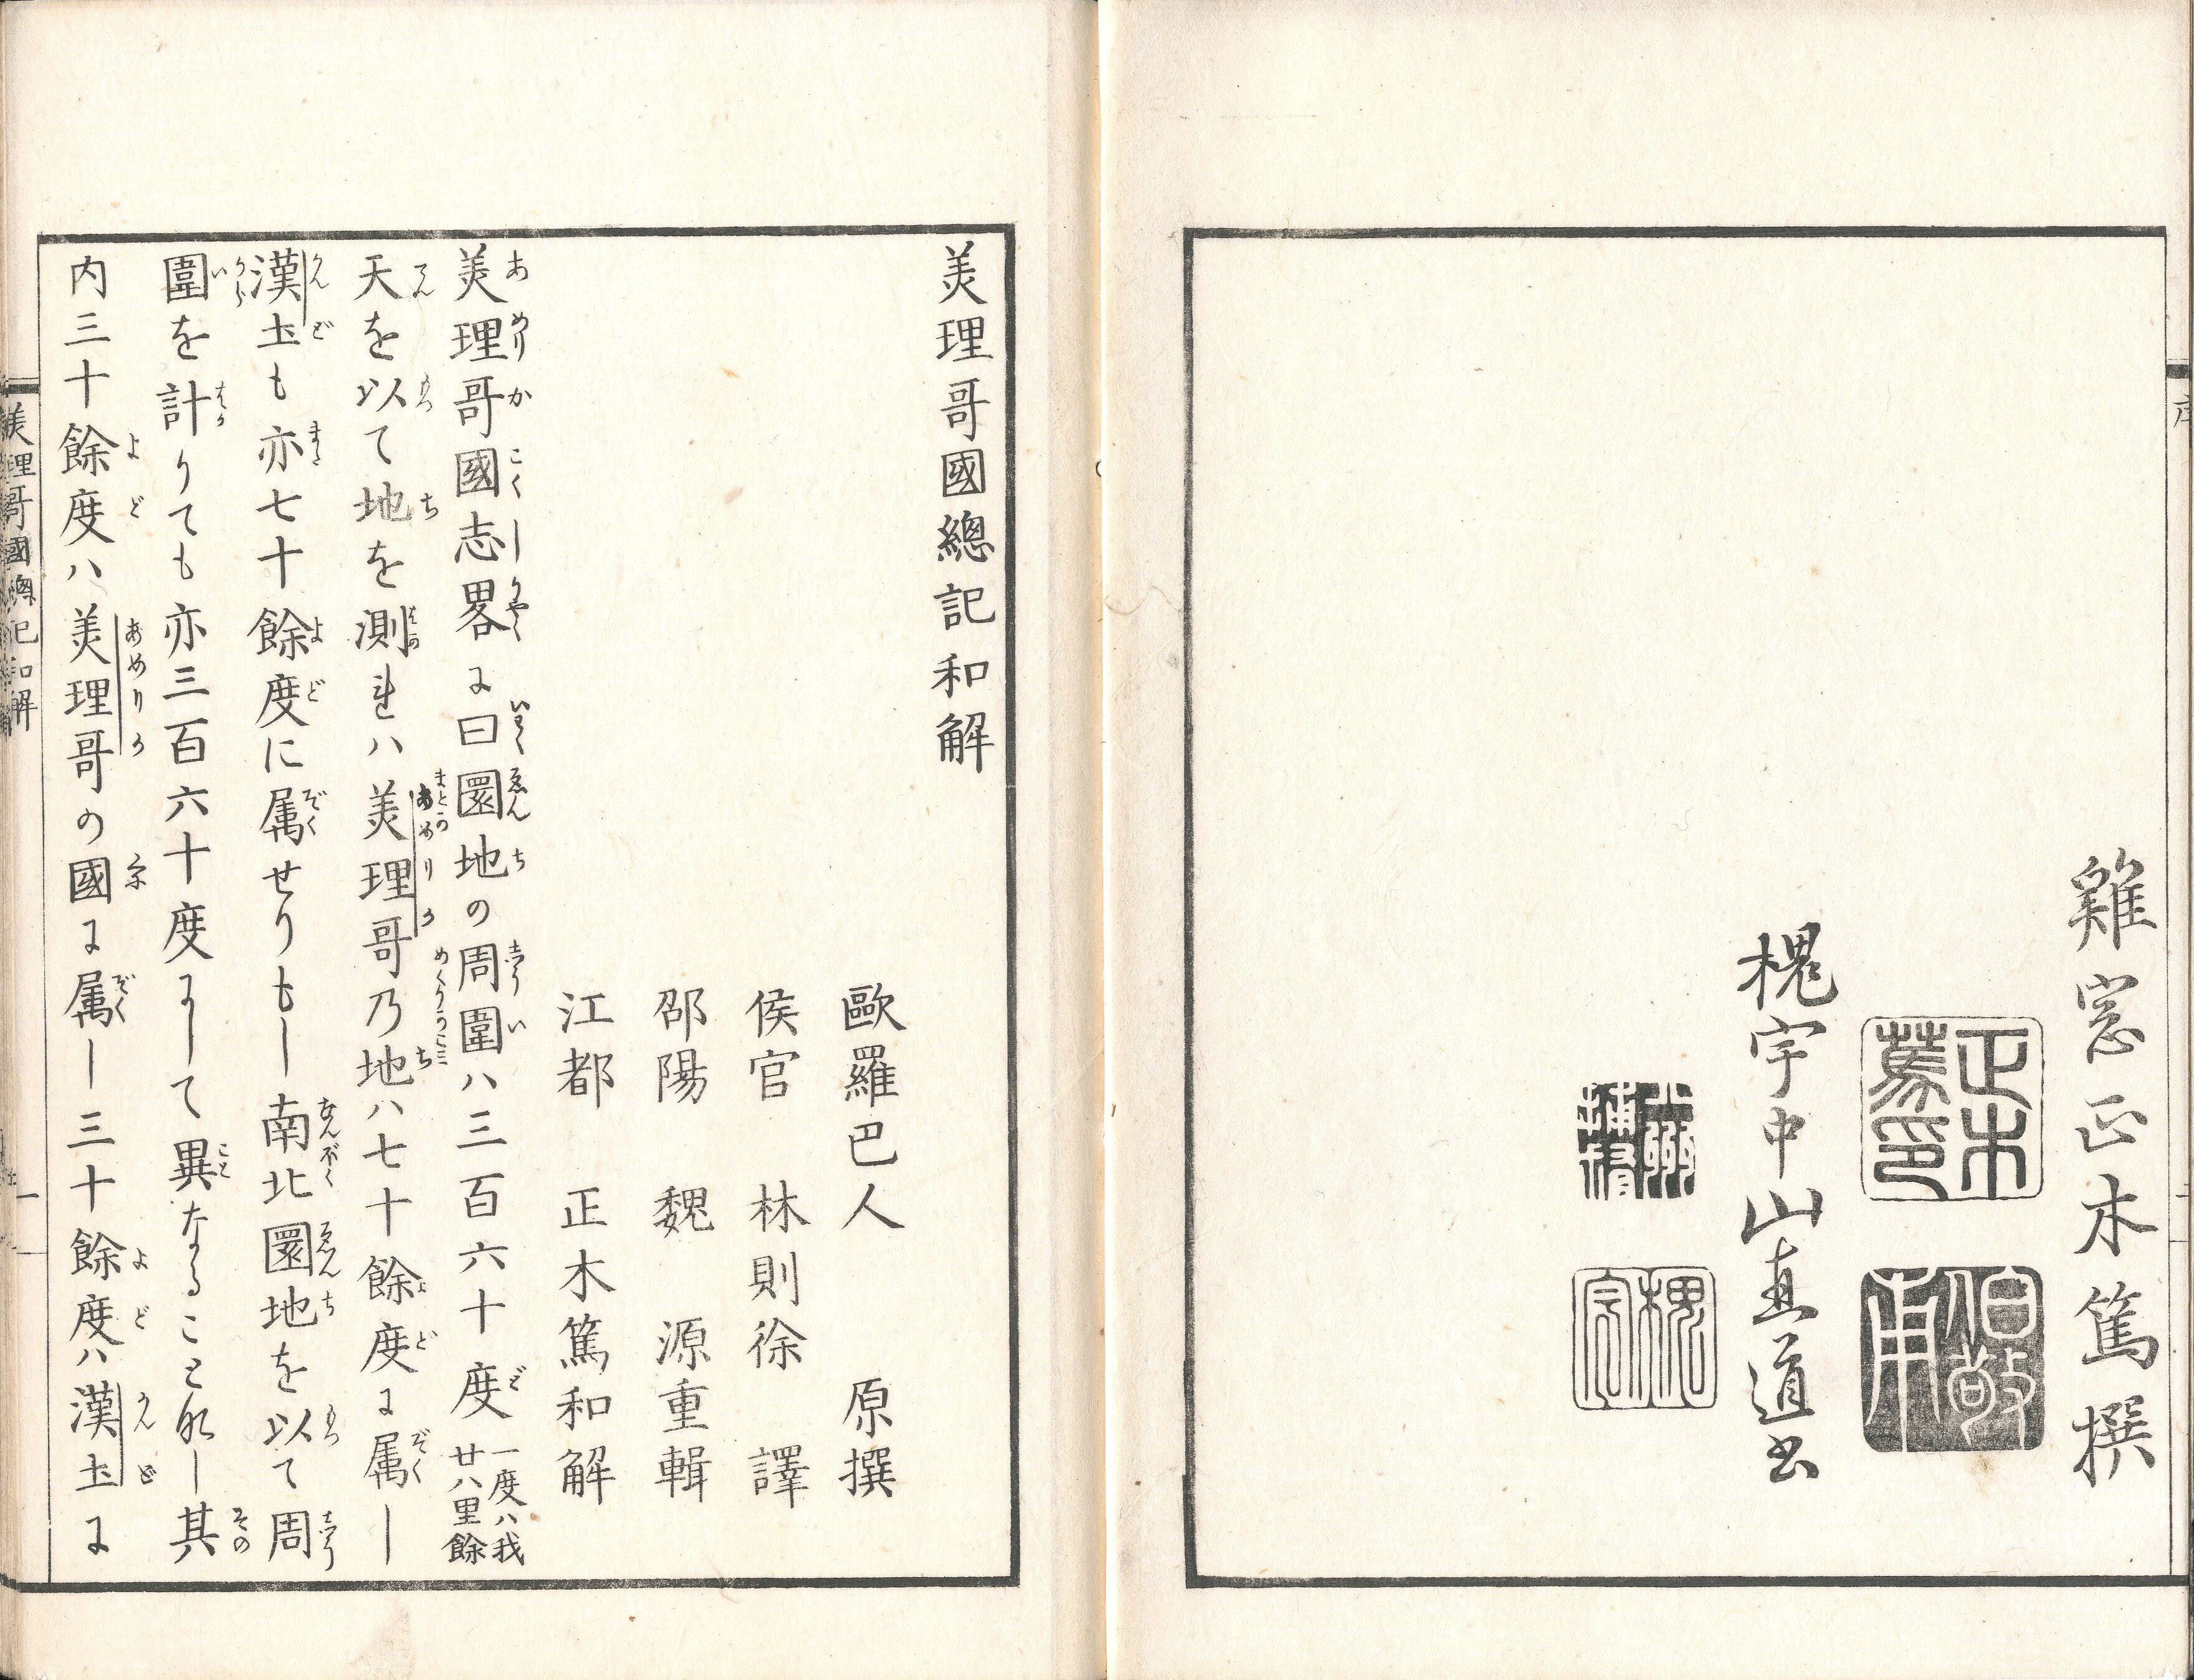 雞窓正木篤撰
正木篤印
伯敬甫
槐宇中山直道書
槐窓
美理哥國總記和解
歐羅巴人　原撰
侯官　林則徐　譯
邵陽　魏　源重輯
江都　正木篤和解
美理哥國志畧に曰圜地の周圍ハ三百六十度一度ハ我廿八里餘
天を以て地を測れハ美理哥乃地ハ七十餘度に属し
漢土も亦七十餘度に属せりもし南北圜地を以て周
圍を計りても亦三百六十度にして異なること无し其
内三十餘度ハ美理哥の國に属し三十餘度ハ漢土に
美理哥國總記和解
一
序